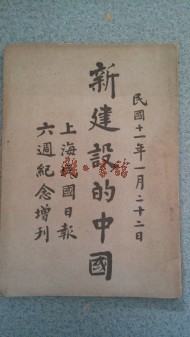 民國十一年一月二十二日
新建設的中國
上海民國日報
六週紀念增刊